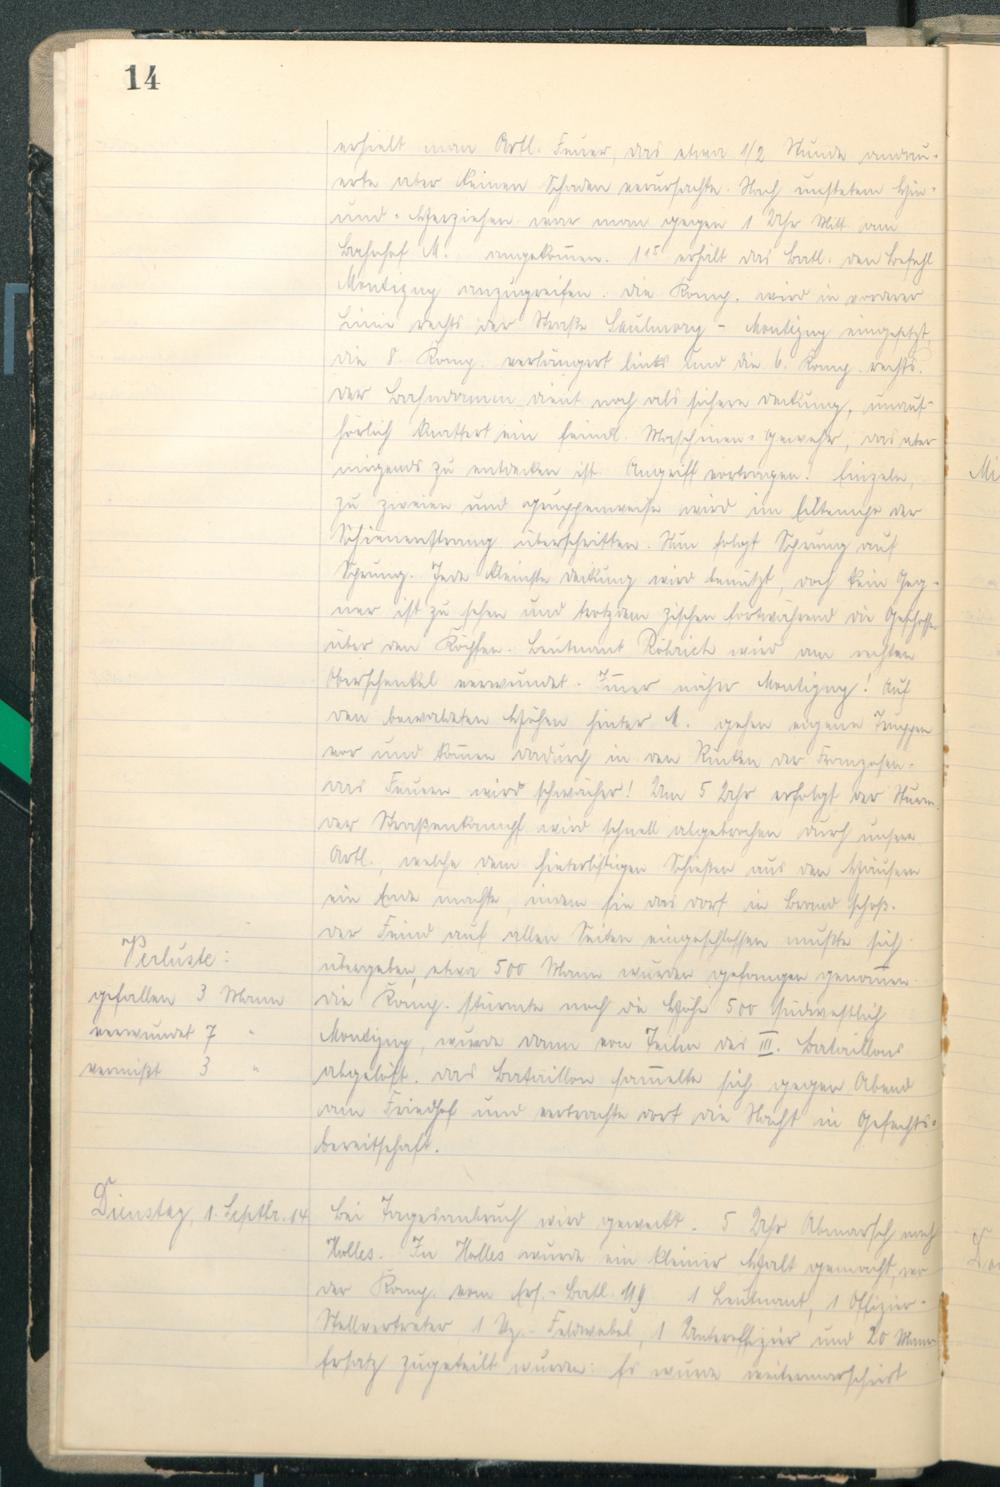 14
erhielt man Artl. Feuer, das etwa 1/2 Stunde andau-
erte aber keinen Schaden verursachte. Nach unstetem Hin-
und-Herziehen war man gegen 1 Uhr Mitt. am
Bahnhof M. angekom̄en. 1¹⁵ erhält das Batl. den Befehl
Montigny anzugreifen. Die Komp. wird in vorderer
Linie rechts der Straße Saulmory - Montigny eingesetzt,
die 8. Komp. verlängert links und die 6. Komp. rechts.
Der Bahndamm dient noch als sichere Deckung, unauf-
hörlich knattert ein feindl. Maschinen-Gewehr, das aber
nirgends zu entdecken ist. Angriff vortragen! Einzeln,
zu zweien und gruppenweise wird im Eiltempo der
Schienenstrang überschritten. Nun folgt Sprung auf
Sprung. Jede kleinste Deckung wird benützt, doch kein Geg-
ner ist zu sehen und trotzdem zischen fortwährend die Geschosse
über den Köpfen. Leutnant Röhrich wird am rechten
Oberschenkel verwundet. Im̄er näher Montigny! Auf
den bewaldeten Höhen hinter M. gehen eigene Truppen
vor und kom̄en dadurch in den Rücken der Franzosen.
das Feuern wird schwächer! Um 5 Uhr erfolgt der Sturm.
der Straßenkampf wird schnell abgebrochen durch unsere
Artl., welche dem hinterlistigen Schießen aus den Häusern
ein Ende machte, indem sie das Dorf in Brand schoß.
Der Feind auf allen Seiten eingeschlossen mußte sich
übergeben, etwa 500 Mann wurden gefangen genom̄en.
Die Komp. stürmte noch die Höhe 500 südwestlich
Montigny, wurde dann von Teilen des III. Bataillons
abgelöst. Das Bataillon sam̄elte sich gegen Abend
am Friedhof und verbrachte dort die Nacht in Gefechts-
bereitschaft.
Verluste:
gefallen 3 Mann
verwundet 7 "
vermißt 3 "
Dienstag, 1. Septbr. 14
Bei Tagesanbruch wird geweckt. 5 Uhr Abmarsch nach
Halles. In Halles wurde ein kleiner Halt gemacht, wo
der Komp. vom Ers.-Batl. 119 1 Leutnant, 1 Offizier-
Stellvertreter, 1 Vz.-Feldwebel, 1 Unteroffizier und 20 Mann
Ersatz zugeteilt wurden. Es wurde weitermarschiert